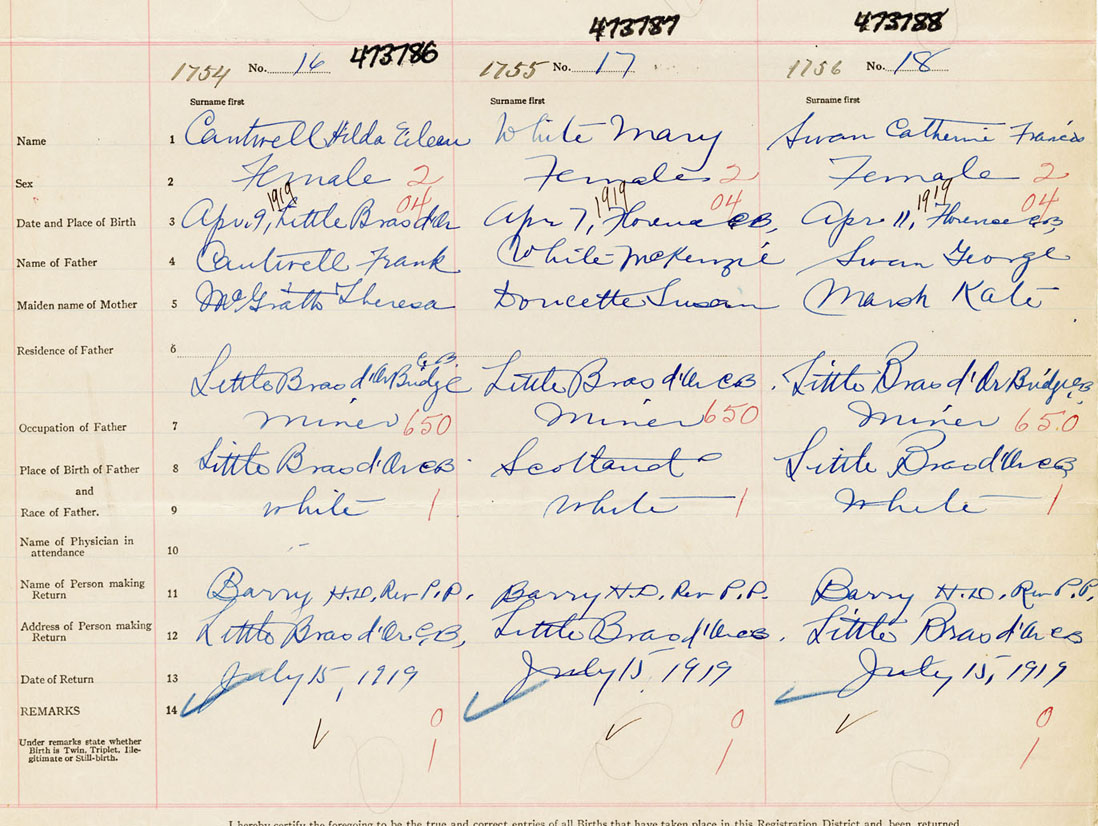 473786 473787 473788
1754 No. 16 1755 No. 17 1756 No. 18
Surname first Surname first Surname first
Name 1 Cantwell Hilda Eileen White Mary Swan Catherine Francis
Sex 2 Female 2 Female 2 Female 2
1919 04 1919 04 1919 04
Date and Place of Birth 3 Apr. 9, Little Bras d'Or Apr 7, Florence C.B, Apr 11, Florence C.B,
Name of Father 4 Cantwell Frank White McKenzie Swan George
Maiden name of Mother 5 McGrath Theresa Doucette Susan Marsh Kate
Residence of Father 6
Little Bras d'Or Bridge C.B. Little Bras d'Or C.B. Little Bras d'Or Bridge C.B
Occupation of Father 7 Miner 650 Miner 650 Miner 650
Place of Birth of Father 8 Little Bras d'Or C.B. Scotland Little Bras d'Or C.B,
and
Race of Father. 9 White 1 White 1 White 1
Name of Physician in
attendance 10
Name of Person making
Return 11 Barry H.D, Rev P.P. Barry H.D, Rev P.P. Barry H.D, Rev P.P,
Address of Person making
Return 12 Little Bras d'Or, C.B, Little Bras d'Or C.B. Little Bras d'Or C.B
Date of Return 13 July 15, 1919 July 15, 1919 July 15, 1919
REMARKS 14 0 0 0
Under remarks state whether
Birth is Twin, Triplet, Ille-
gitimate or Still-birth. 1 1 1
I hereby certify the foregoing to be the true and correct entries of all Births that have taken place in this Registration District and been returned